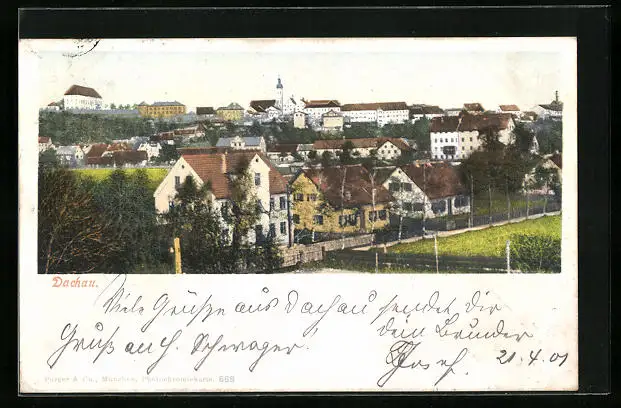 Dachau.
Viele Grüße aus Dachau sendet Dir
Gruß an H. Schwager. dein Bruder
Josef. 21.4.01
Purger & Co., München, Photochromiekarte. 668